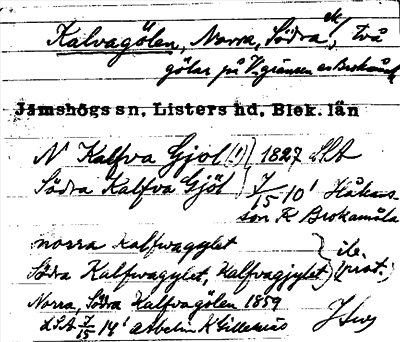 Kalvagölen, Norra, Södra, etc, två
gölar på V. gränsen av Brokamåla
Jämshögs sn, Listers hd, Blek. län
N Kalfva Gjol (!) 1827 LSA
Södra Kalfva Gjöl 7/15 10' Håkans-
son R Brokamåla
norra kalfvagylet
Södra Kalfvagylet, Kalfvagjylet
Norra, Södra Kalfvagölen 1859
LSA 7/15 14'